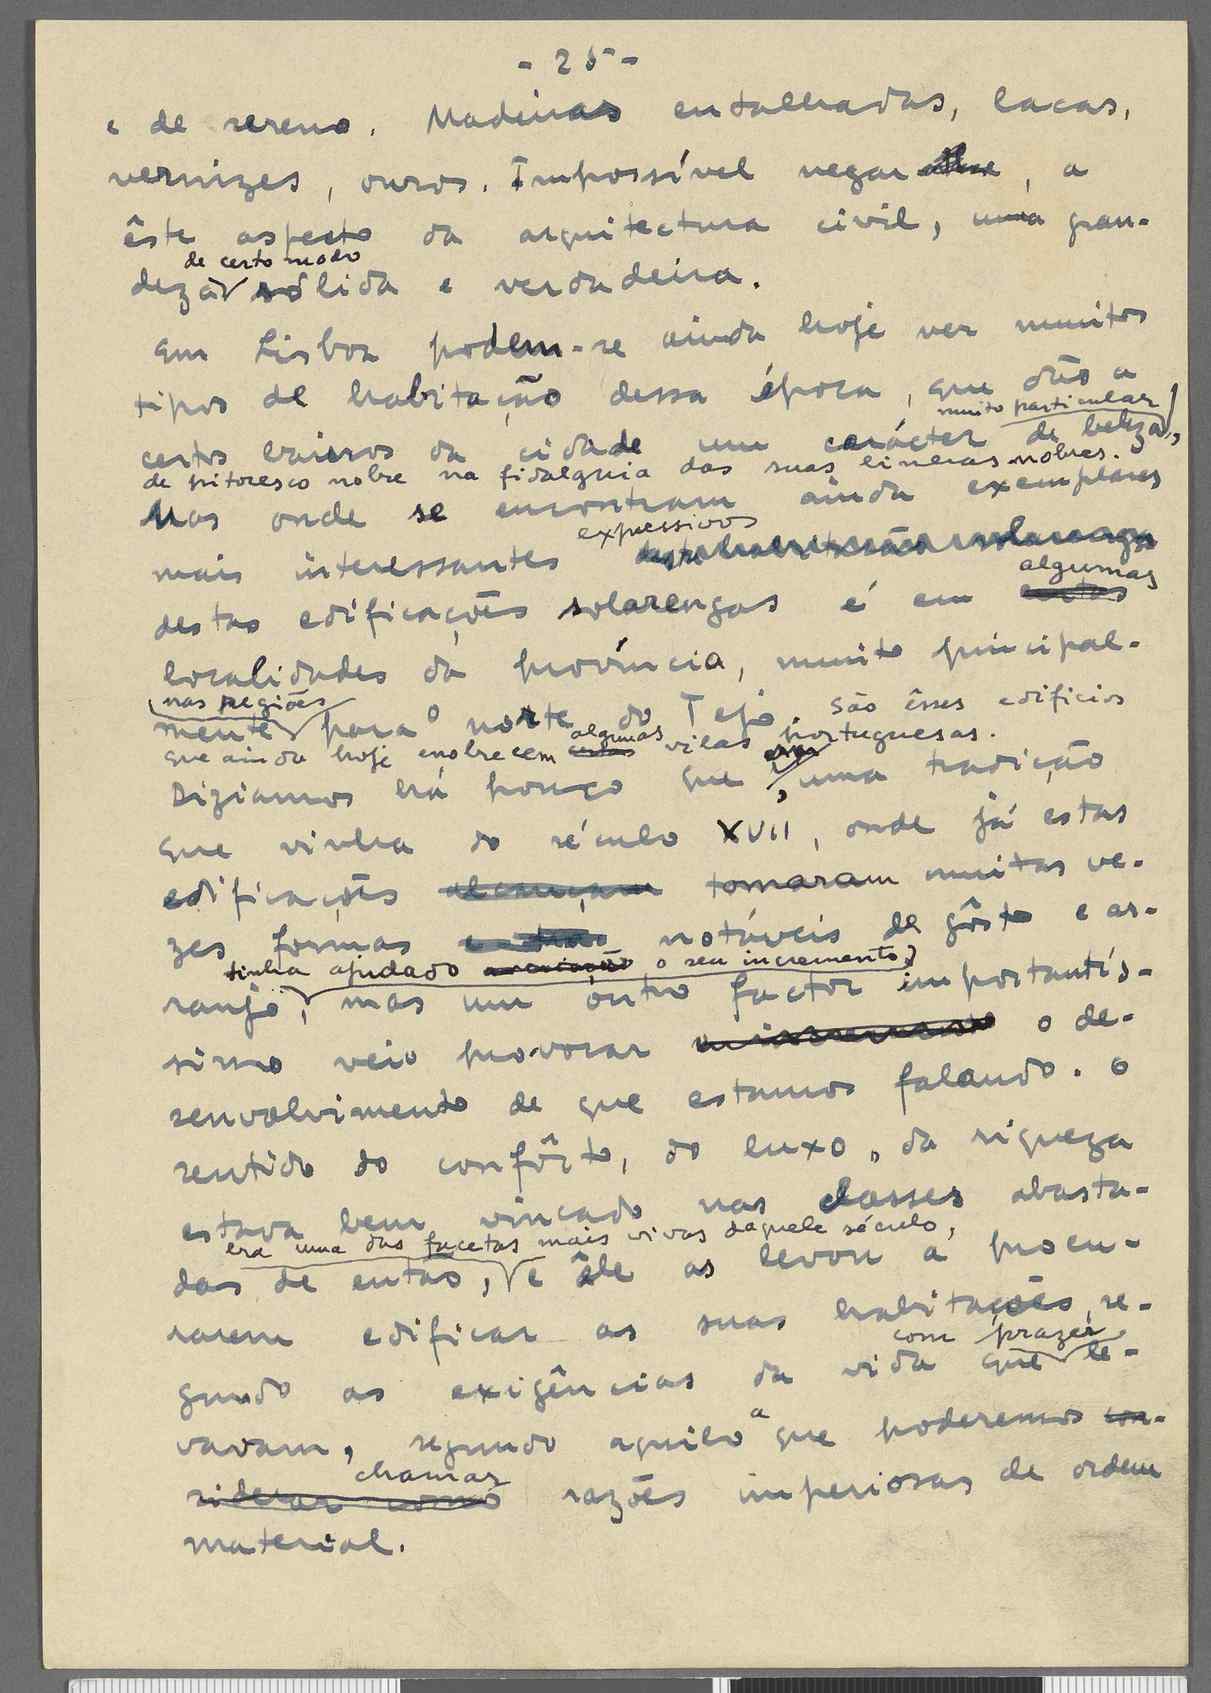 - 25 -
e de sereno. Madeiras entalhadas, lacas,
vernizes, ouros. Impossível negar, a
êste aspecto da arquitectura civil, uma gran-
de certo modo
deza sólida e verdadeira.
Em Lisboa podem-se ainda hoje ver muitos
tipos de habitação dessa época, que dão a
muito particular
certos bairros da cidade um carácter de beleza,
de pitoresco nobre na fidalguia das suas linhas nobres.
Mas onde se encontram ainda exemplares
expressivos
mais interessantes desta habitação solarenga
algumas
destas edificações solarengas é em certas
localidades da província, muito principal-
nas regiões
mente para o norte do Tejo. São êsses edifícios
algumas
que ainda hoje enobrecem certas vilas portuguesas.
Diziamos há pouco que, uma tradição
que vinha do século XVII, onde já estas
edificações alcançam tomaram muitas ve-
zes formas notáveis de gôsto e ar-
tinha ajudado o seu incremento,
ranjo, mas um outro factor importantís-
simo veio provocar o incremento o de-
senvolvimento de que estamos falando. O
sentido do confôrto, do luxo, da riqueza
estava bem vincado nas classes abasta-
era uma das facetas mais vivas daquele século,
das de então, e êle as levou a procu-
rarem edificar as suas habitações, se-
com prazer
gundo as exigências da vida que le-
vavam, segundo aquilo a que poderemos con-
chamar
siderar como razões imperiosas de ordem
material.